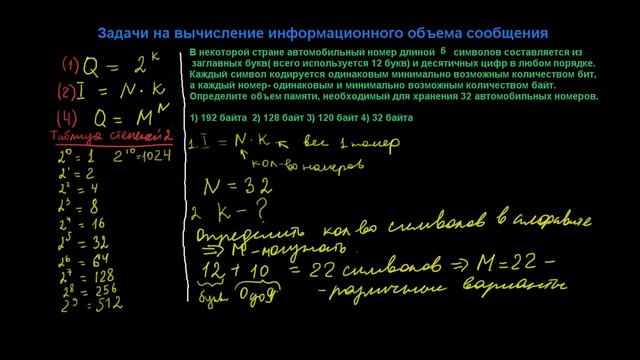 Задачи на вычисление информационного объема сообщения
В некоторой стране автомобильный номер длиной 6 символов составляется из
заглавных букв( всего используется 12 букв) и десятичных цифр в любом порядке.
Каждый символ кодируется одинаковым минимально возможным количеством бит,
а каждый номер- одинаковым и минимально возможным количеством байт.
Определите объем памяти, необходимый для хранения 32 автомобильных номеров.
1) 192 байта 2) 128 байт 3) 120 байт 4) 32 байта
(1) Q = 2^K
(2) I = N·K
(4) Q = M^N
Таблица степеней 2
2^0 = 1 2^10 = 1024
2^1 = 2
2^2 = 4
2^3 = 8
2^4 = 16
2^5 = 32
2^6 = 64
2^7 = 128
2^8 = 256
2^9 = 512
1. I = N·K вес 1 номер
кол-во номеров
N = 32
2. K - ?
Определить кол-во символов в алфавите
=> M - мощность.
12 + 10 = 22 символов => M = 22 -
букв 0 до 9 - различные варианты